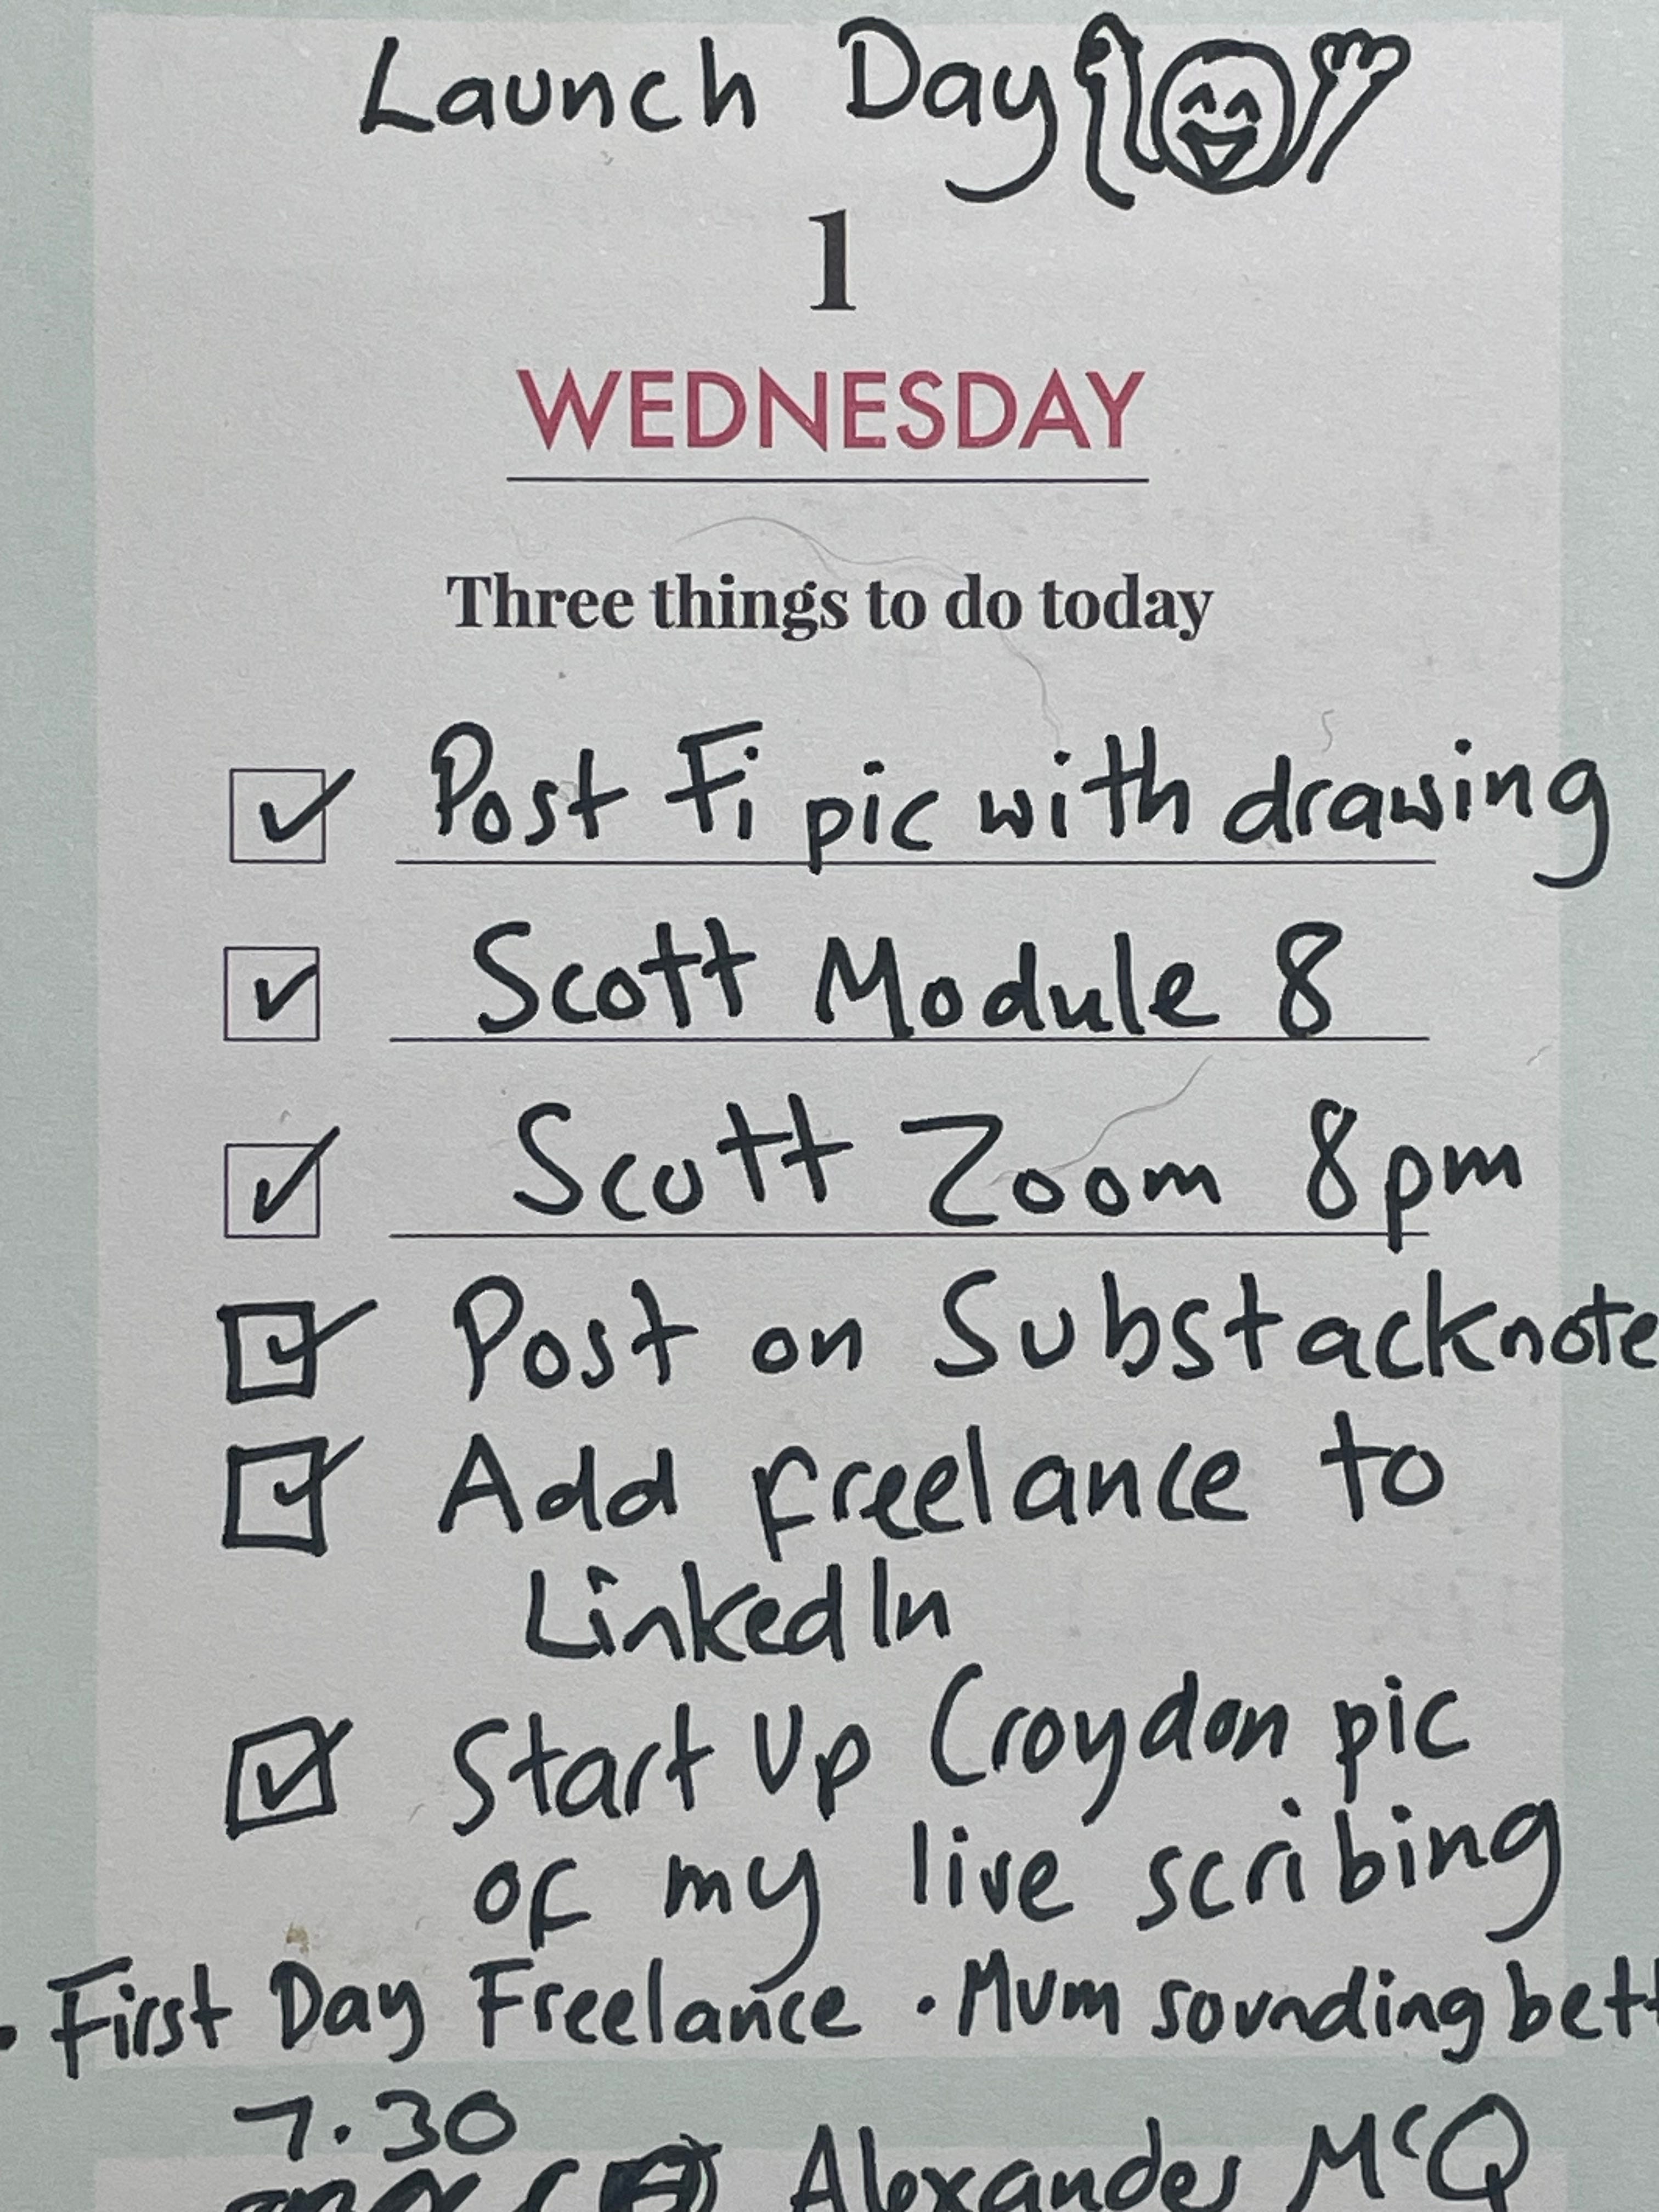 Launch Day
1
WEDNESDAY
Three things to do today
Post Fi pic with drawing
Scott Module 8
Scott Zoom 8pm
Post on Substacknote
Add freelance to
LinkedIn
Start Up Croydon pic
of my live scribing
• First Day Freelance • Mum sounding bett
7.30
Alexander McQ